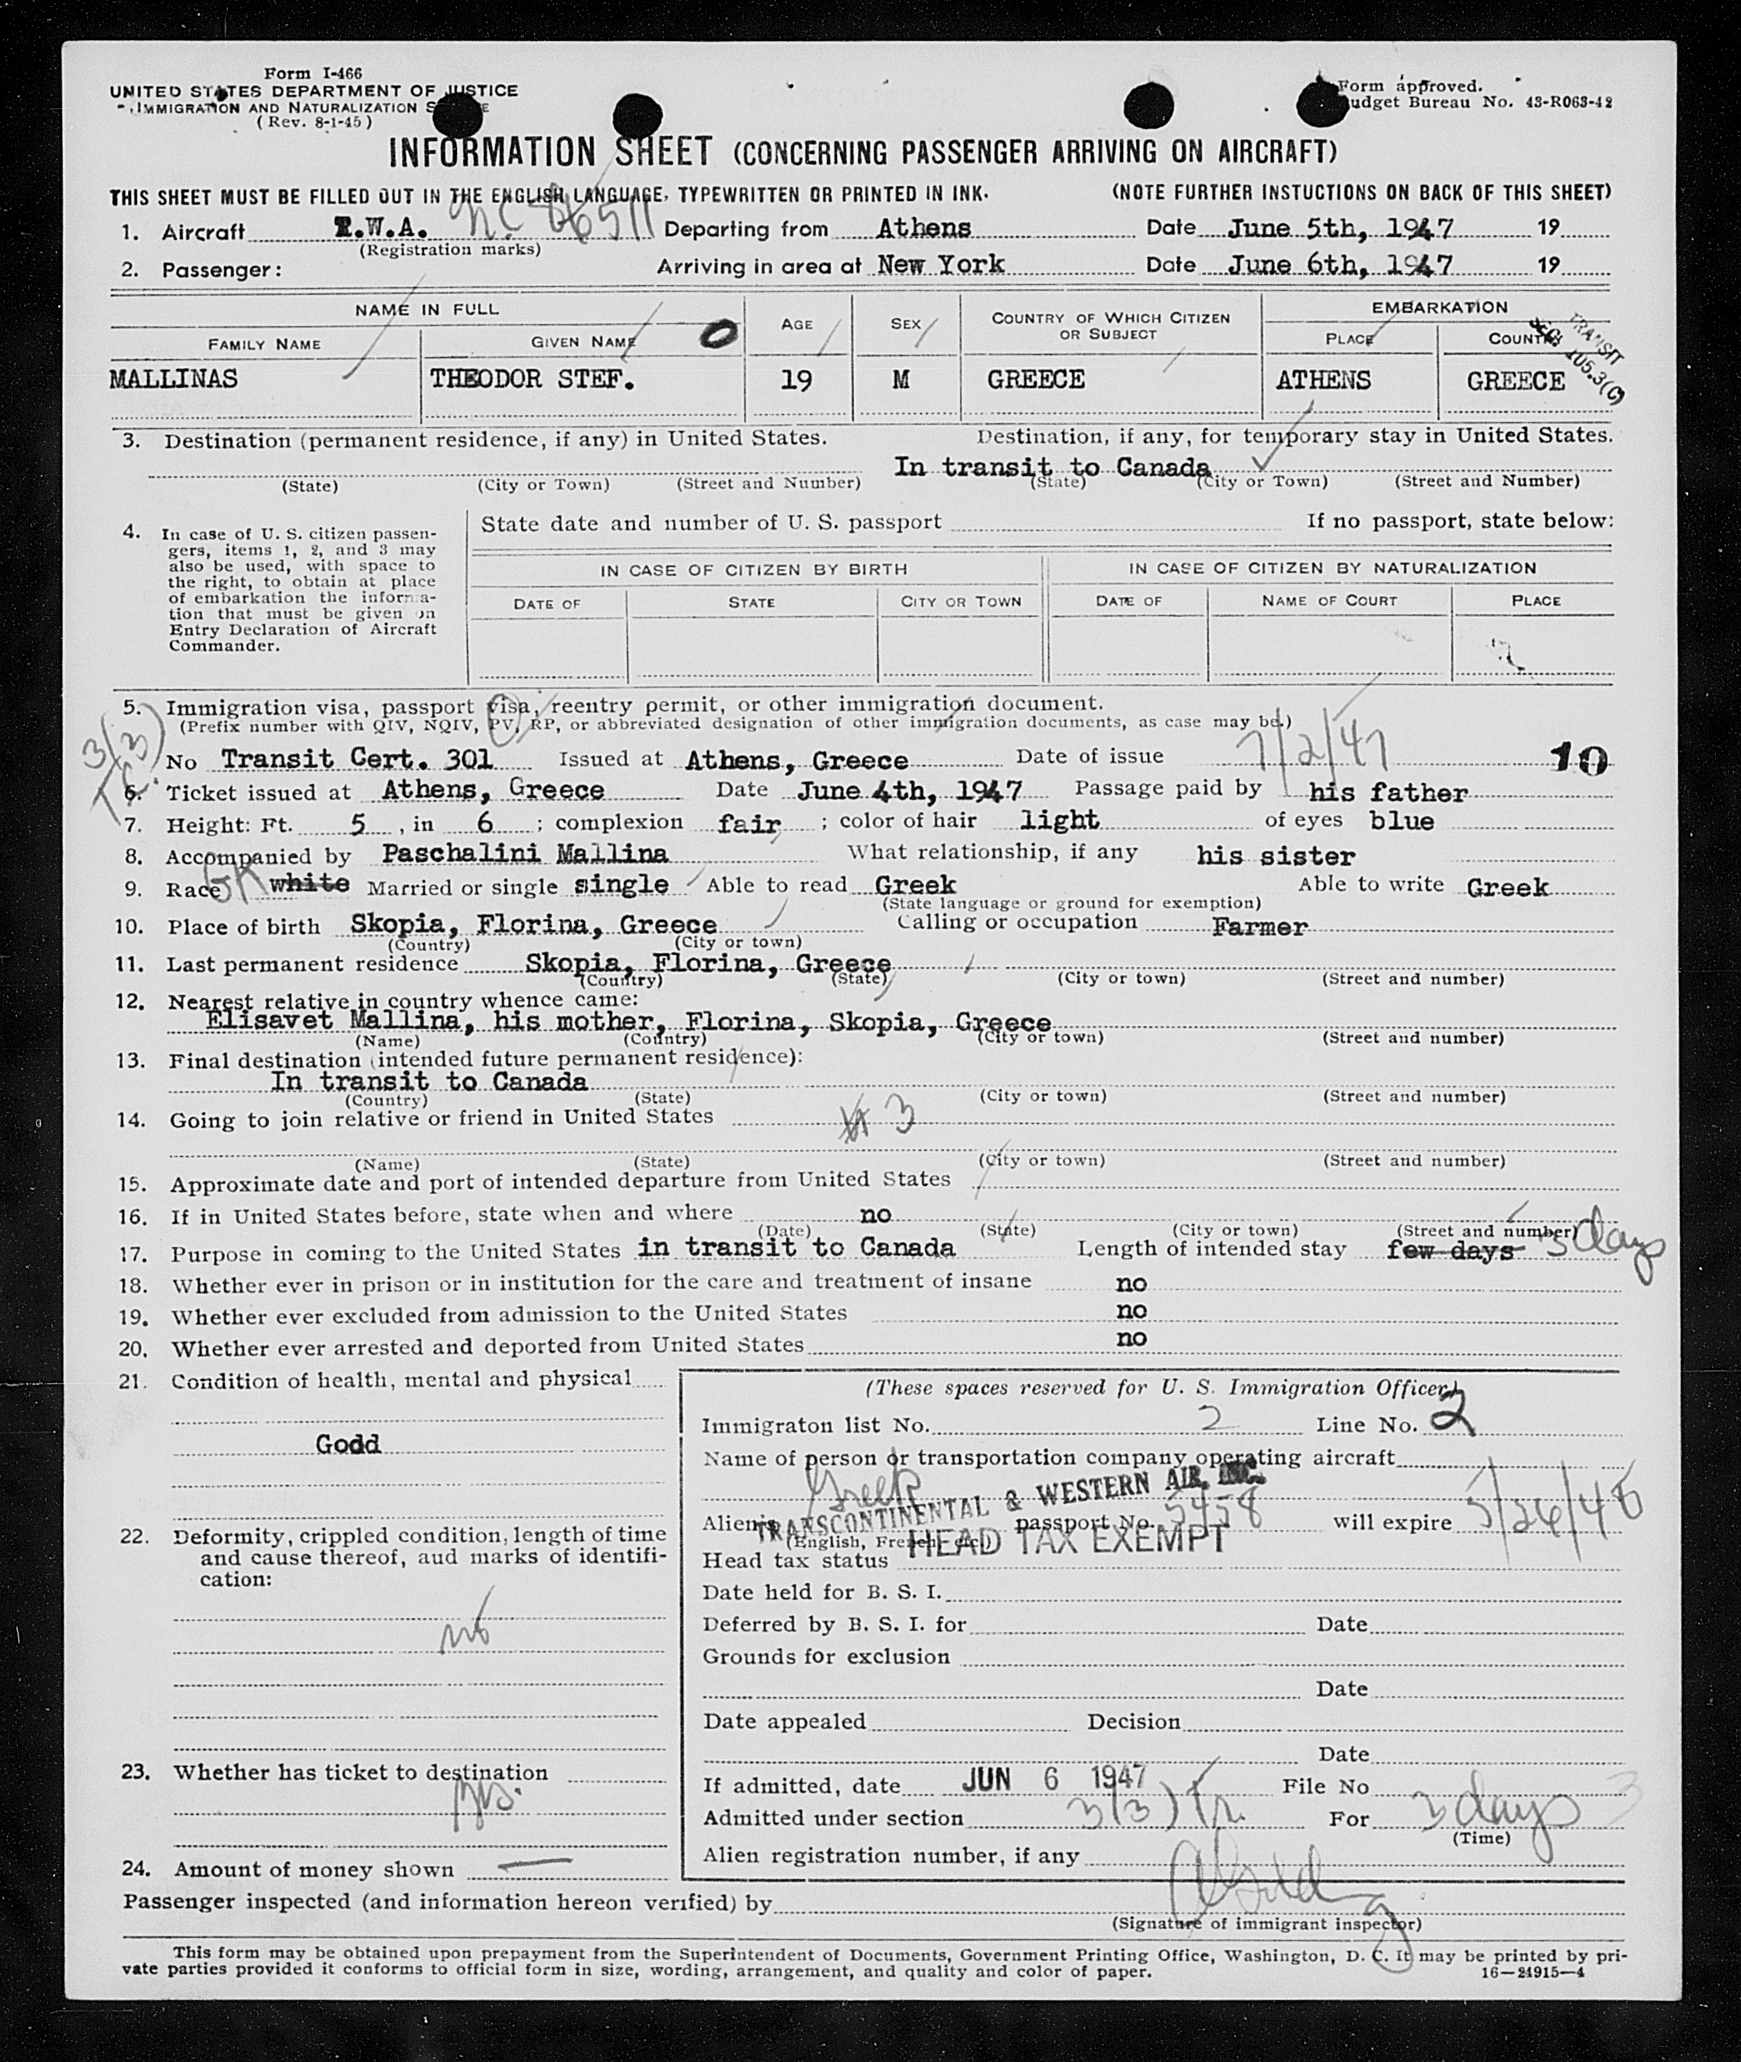 Form I-466
UNITED STATES DEPARTMENT OF JUSTICE
IMMIGRATION AND NATURALIZATION
(Rev. 8-1-45)
Form approved.
Budget Bureau No. 43-R063-42
INFORMATION SHEET (CONCERNING PASSENGER ARRIVING ON AIRCRAFT)
THIS SHEET MUST BE FILLED OUT IN THE ENGLISH LANGUAGE, TYPEWRITTEN OR PRINTED IN INK. (NOTE FURTHER INSTUCTIONS ON BACK OF THIS SHEET)
1. Aircraft T.W.A. NC 86511 Departing from Athens Date June 5th, 1947 19
(Registration marks)
2. Passenger: Arriving in area at New York Date June 6th, 1947 19
NAME IN FULL AGE SEX COUNTRY OF WHICH CITIZEN OR SUBJECT EMBARKATION
FAMILY NAME GIVEN NAME PLACE COUNTRY
TRANSIT
SEC. 105.3(C)
MALLINAS THEODOR STEF. 19 M GREECE ATHENS GREECE
3. Destination (permanent residence, if any) in United States. Destination, if any, for temporary stay in United States.
In transit to Canada
(State) (City or Town) (Street and Number) (State) (City or Town) (Street and Number)
4. In case of U. S. citizen passen-
gers, items 1, 2, and 3 may
also be used, with space to
the right, to obtain at place
of embarkation the informa-
tion that must be given on
Entry Declaration of Aircraft
Commander.
State date and number of U. S. passport If no passport, state below:
IN CASE OF CITIZEN BY BIRTH IN CASE OF CITIZEN BY NATURALIZATION
DATE OF STATE CITY OR TOWN DATE OF NAME OF COURT PLACE
5. Immigration visa, passport visa, reentry permit, or other immigration document.
(Prefix number with QIV, NQIV, PV, RP, or abbreviated designation of other immigration documents, as case may be.)
3(3)
No Transit Cert. 301 Issued at Athens, Greece Date of issue 7/2/47 10
6. Ticket issued at Athens, Greece Date June 4th, 1947 Passage paid by his father
7. Height: Ft. 5, in 6; complexion fair; color of hair light of eyes blue
8. Accompanied by Paschalini Mallina What relationship, if any his sister
9. Race GK white Married or single single Able to read Greek Able to write Greek
(State language or ground for exemption)
10. Place of birth Skopia, Florina, Greece Calling or occupation Farmer
(Country) (City or town)
11. Last permanent residence Skopia, Florina, Greece
(Country) (State) (City or town) (Street and number)
12. Nearest relative in country whence came:
Elisavet Mallina, his mother, Florina, Skopia, Greece
(Name) (Country) (City or town) (Street and number)
13. Final destination (intended future permanent residence):
In transit to Canada
(Country) (State) (City or town) (Street and number)
14. Going to join relative or friend in United States 3
(Name) (State) (City or town) (Street and number)
15. Approximate date and port of intended departure from United States
16. If in United States before, state when and where no
(Date) (State) (City or town) (Street and number)
17. Purpose in coming to the United States in transit to Canada Length of intended stay few days 3 days
18. Whether ever in prison or in institution for the care and treatment of insane no
19. Whether ever excluded from admission to the United States no
20. Whether ever arrested and deported from United States no
21. Condition of health, mental and physical
Godd
22. Deformity, crippled condition, length of time
and cause thereof, aud marks of identifi-
cation:
no
23. Whether has ticket to destination
yes.
24. Amount of money shown —
(These spaces reserved for U. S. Immigration Officer)
Immigraton list No. 2 Line No. 2
Name of person or transportation company operating aircraft
TRANSCONTINENTAL & WESTERN AIR, INC.
Alien's Greek passport No. 5458 will expire 5/26/48
(English, French, etc.)
Head tax status HEAD TAX EXEMPT
Date held for B. S. I.
Deferred by B. S. I. for Date
Grounds for exclusion
Date
Date appealed Decision
Date
If admitted, date JUN 6 1947 File No
Admitted under section 3(3) Tr. For 3 days 3
(Time)
Alien registration number, if any
Passenger inspected (and information hereon verified) by
(Signature of immigrant inspector)
This form may be obtained upon prepayment from the Superintendent of Documents, Government Printing Office, Washington, D. C. It may be printed by pri-
vate parties provided it conforms to official form in size, wording, arrangement, and quality and color of paper. 16—24915—4